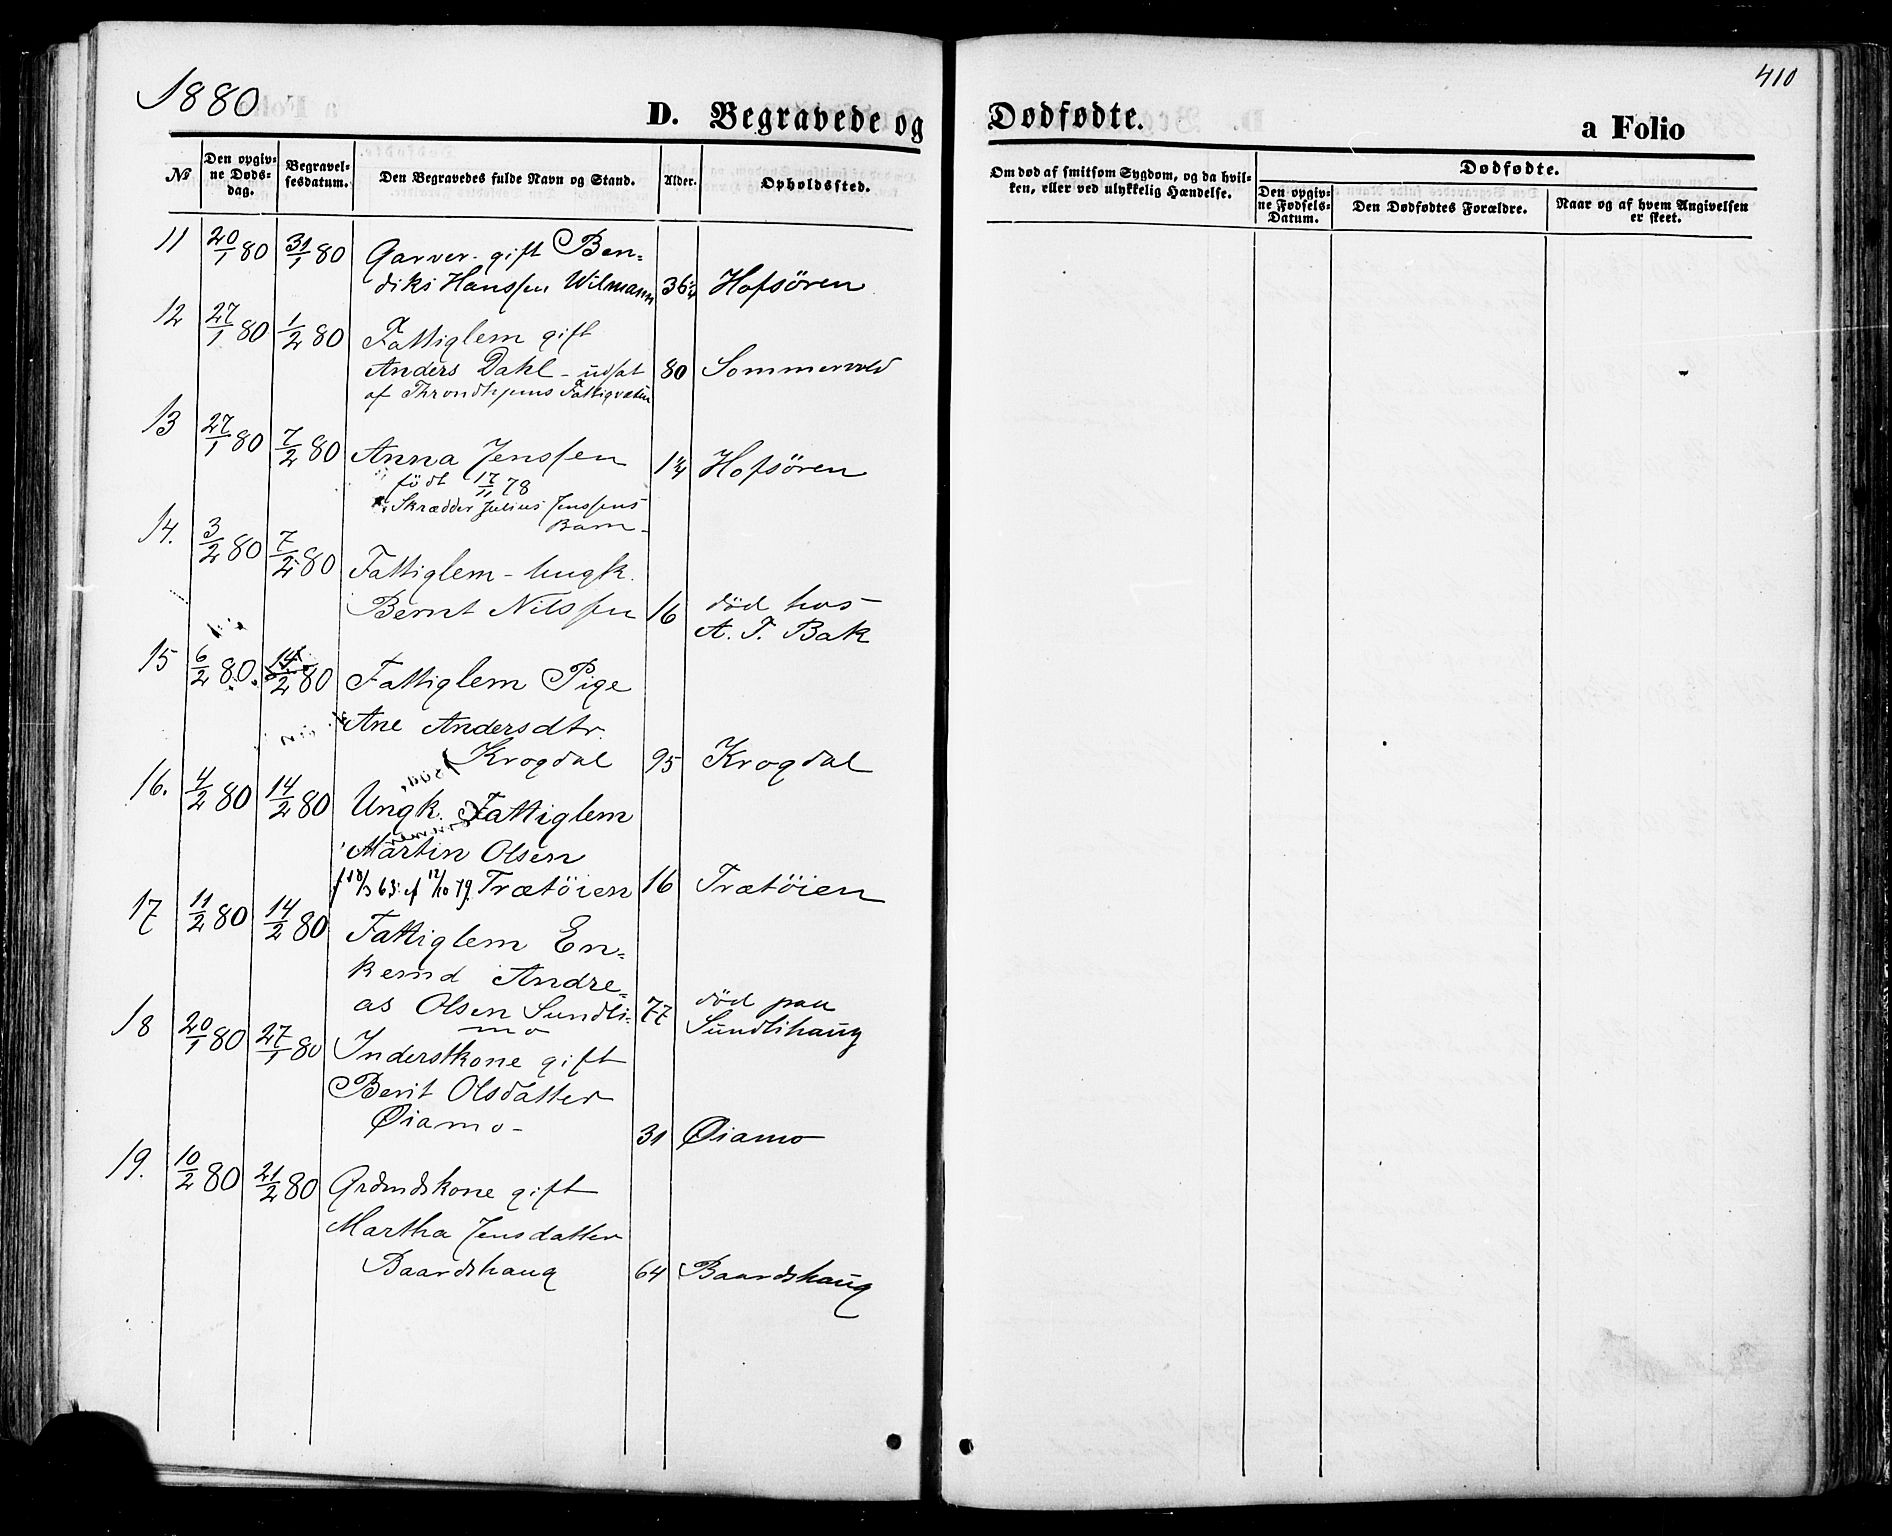 1880
410
D. Begravede og Dødfødte.
a Folio
№
Den opgivne Døds-dag.
Begravelsesdatum.
Den Begravedes fulde Navn og Stand.
Alder.
Opholdssted.
Om død af smitsom Sygdom, og da hvilken, eller ved ulykkelig Hændelse.
Dødfødte.
Den opgivne Fødsels-Datum.
Den Dødfødtes Forældre.
Naar og af hvem Angivelsen er skeet.
11 20/1 80 31/1 80 Garver. gift Ben-
diks Hanssen Wilmann 36 1/4 Hofsören
12 27/1 80 1/2 80 Fattiglem gift
Anders Dahl - udsat 80 Sommervold
af Throndhjems Fattigvæsen
13 27/1 80 7/2 80 Anna Jenssen 1 1/4 Hofsören
födt 17/11 78
Skrædder Julius Jenssens
Barn -
14. 3/2 80 7/2 80 Fattiglem - Ungk.
Bernt Nilssen 16 död hos
A. T. Bak
15 6/2 80. 14/2 80 Fattiglem Pige
Ane Andersdtr.
Krogdal 95 Krogdal
16. 4/2 80 14/2 80 Ungk. Fattiglem
Martin Olsen
f 18/3 63: cf 12/10 79. Trætöien 16 Trætöien
17 11/2 80 14/2 80 Fattiglem En-
kemd Andre-
as Olsen Sundli- 77 död paa
mo Sundlihaug
18 20/1 80 27/1 80 Inderstkone gift
Berit Olsdatter
Øiamo - 31 Øiamo
19. 10/2 80 21/2 80 Grdmdskone gift
Martha Jensdatter
Baardshaug 64 Baardshaug